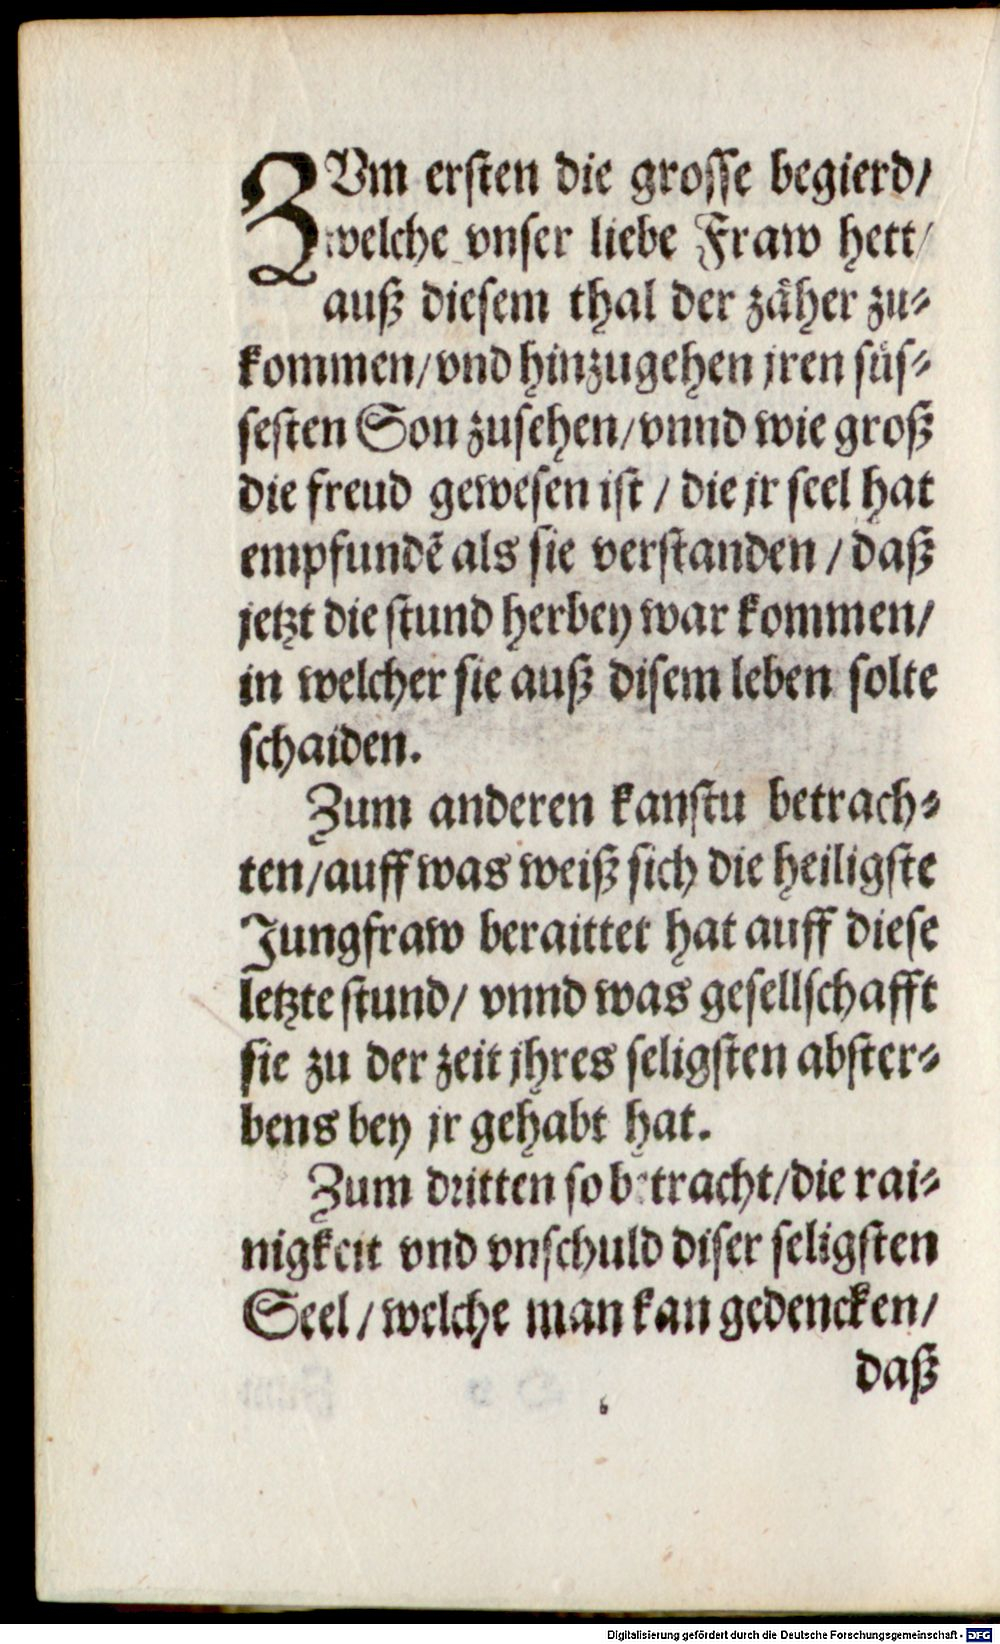 ZVm ersten die grosse begierd/
welche vnser liebe Fraw hett/
auß diesem thal der zäher zu-
kommen/vnd hinzugehen jren süs-
sesten Son zusehen/vnnd wie groß
die freud gewesen ist / die jr seel hat
empfundē als sie verstanden / daß
jetzt die stund herbey war kommen/
in welcher sie auß disem leben solte
schaiden.
Zum anderen kanstu betrach-
ten/auff was weiß sich die heiligste
Jungfraw beraittet hat auff diese
letzte stund/ vnnd was gesellschafft
sie zu der zeit jhres seligsten abster-
bens bey jr gehabt hat.
Zum dritten so betracht/die rai-
nigkeit vnd vnschuld diser seligsten
Seel / welche man kan gedencken/
daß
Digitalisierung gefördert durch die Deutsche Forschungsgemeinschaft - DFG